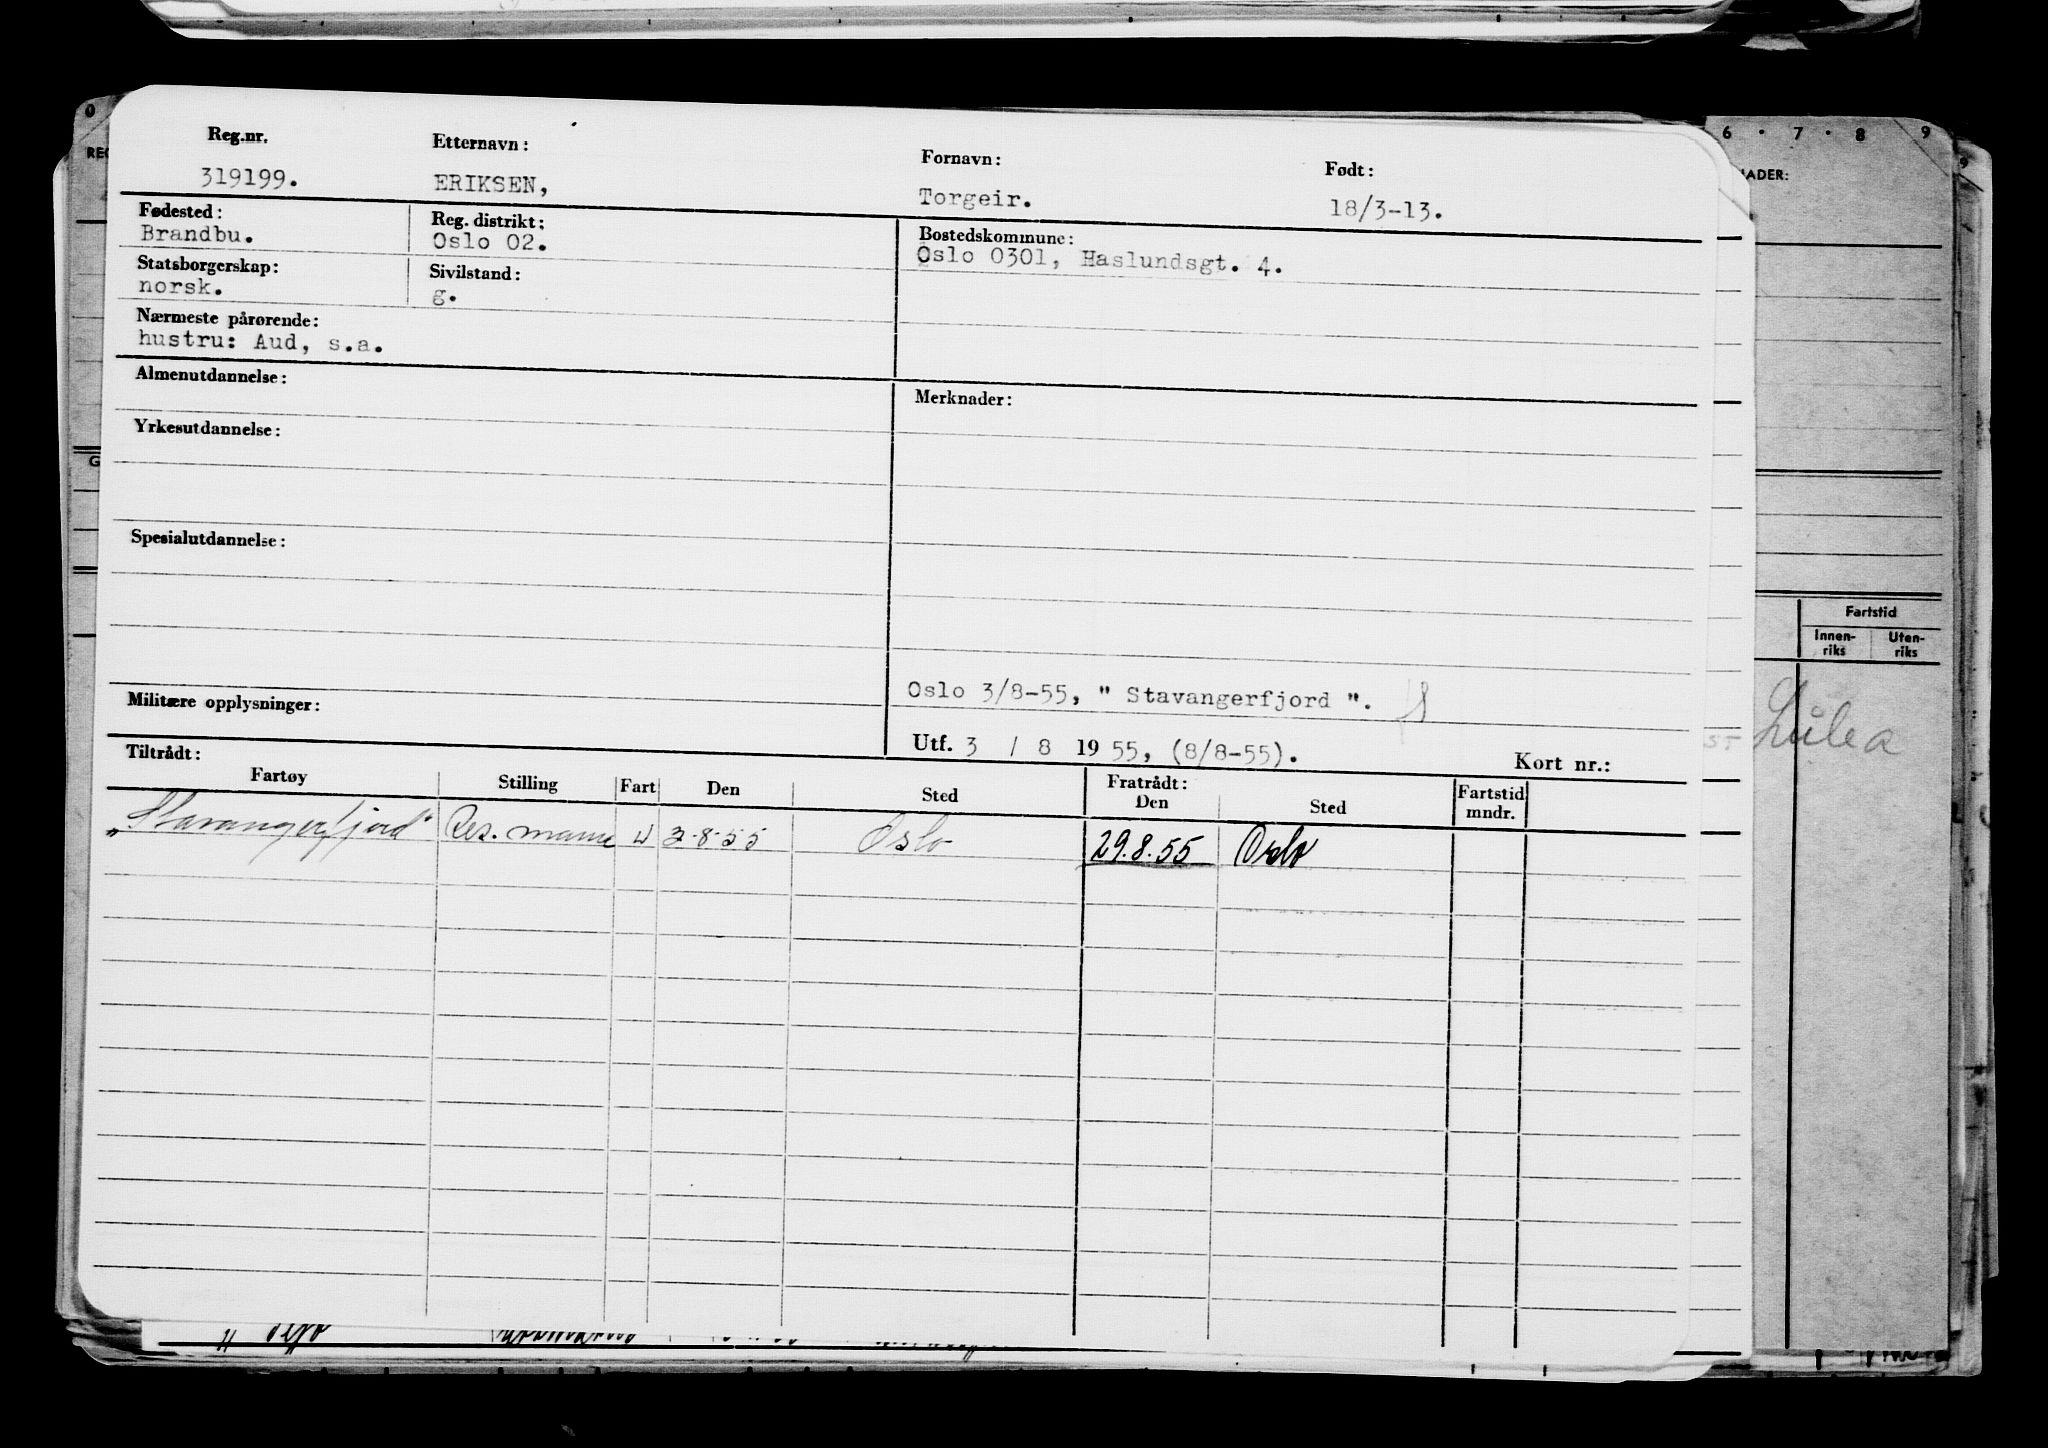 Reg.nr. Etternavn: Fornavn: Født:
319199. ERIKSEN, Torgeir. 18/3-13.
Fødested: Reg. distrikt: Bostedskommune:
Brandbu. Oslo 02. Oslo 0301, Haslundsgt. 4.
Statsborgerskap: Sivilstand:
norsk. g.
Nærmeste pårørende:
hustru: Aud, s.a.
Almenutdannelse: Merknader:
Yrkesutdannelse:
Spesialutdannelse:
Oslo 3/8-55, " Stavangerfjord ".
Militære opplysninger:
Utf. 3 / 8 1955, (8/8-55). Kort nr.:
Tiltrådt: Fratrådt:
Fartøy Stilling Fart Den Sted Den Sted Fartstid mndr.
„Stavangerfjord" Res. mann U 3-8-55 Oslo 29.8.55 Oslo
6 · 7 · 8 9
NADER:
Fartstid
Innen-riks Uten-riks
Luleå